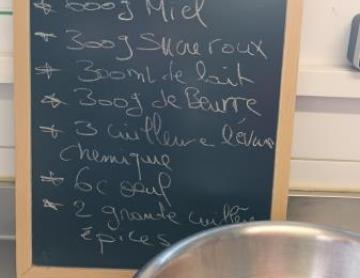 * 600g Miel
* 300g Sucre roux
* 300ml de lait
* 300g de Beurre
* 3 cuillere levure
chemique
* 6c oeuf
* 2 grande cuillère
épices